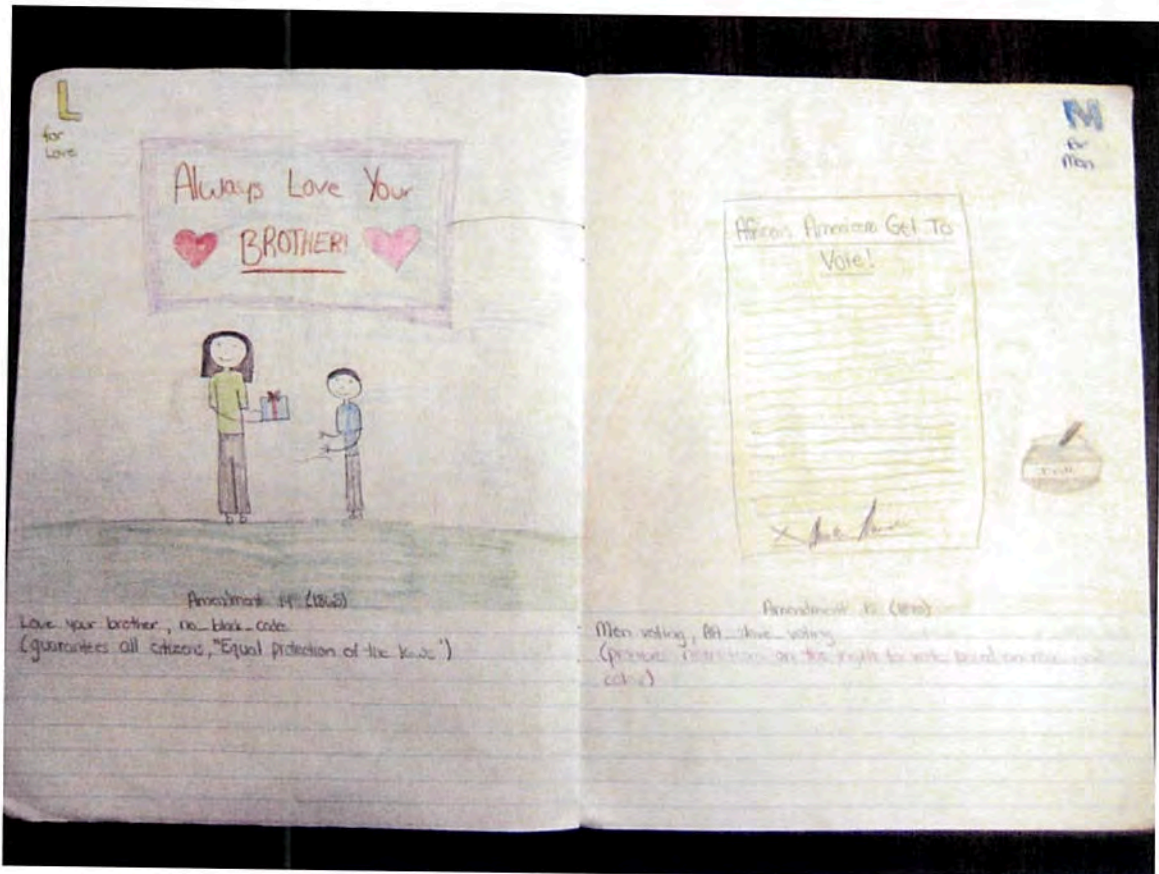 L
for
Love
Always Love Your
BROTHER!
Amendment 14 (1868)
Love your brother, no black code
(guarantees all citizens, "Equal protection of the laws")
M
for
Men
African Americans Get To
Vote!
X
Amendment 15 (1870)
Men voting, AA slave voting
restrictions on the right to vote based on